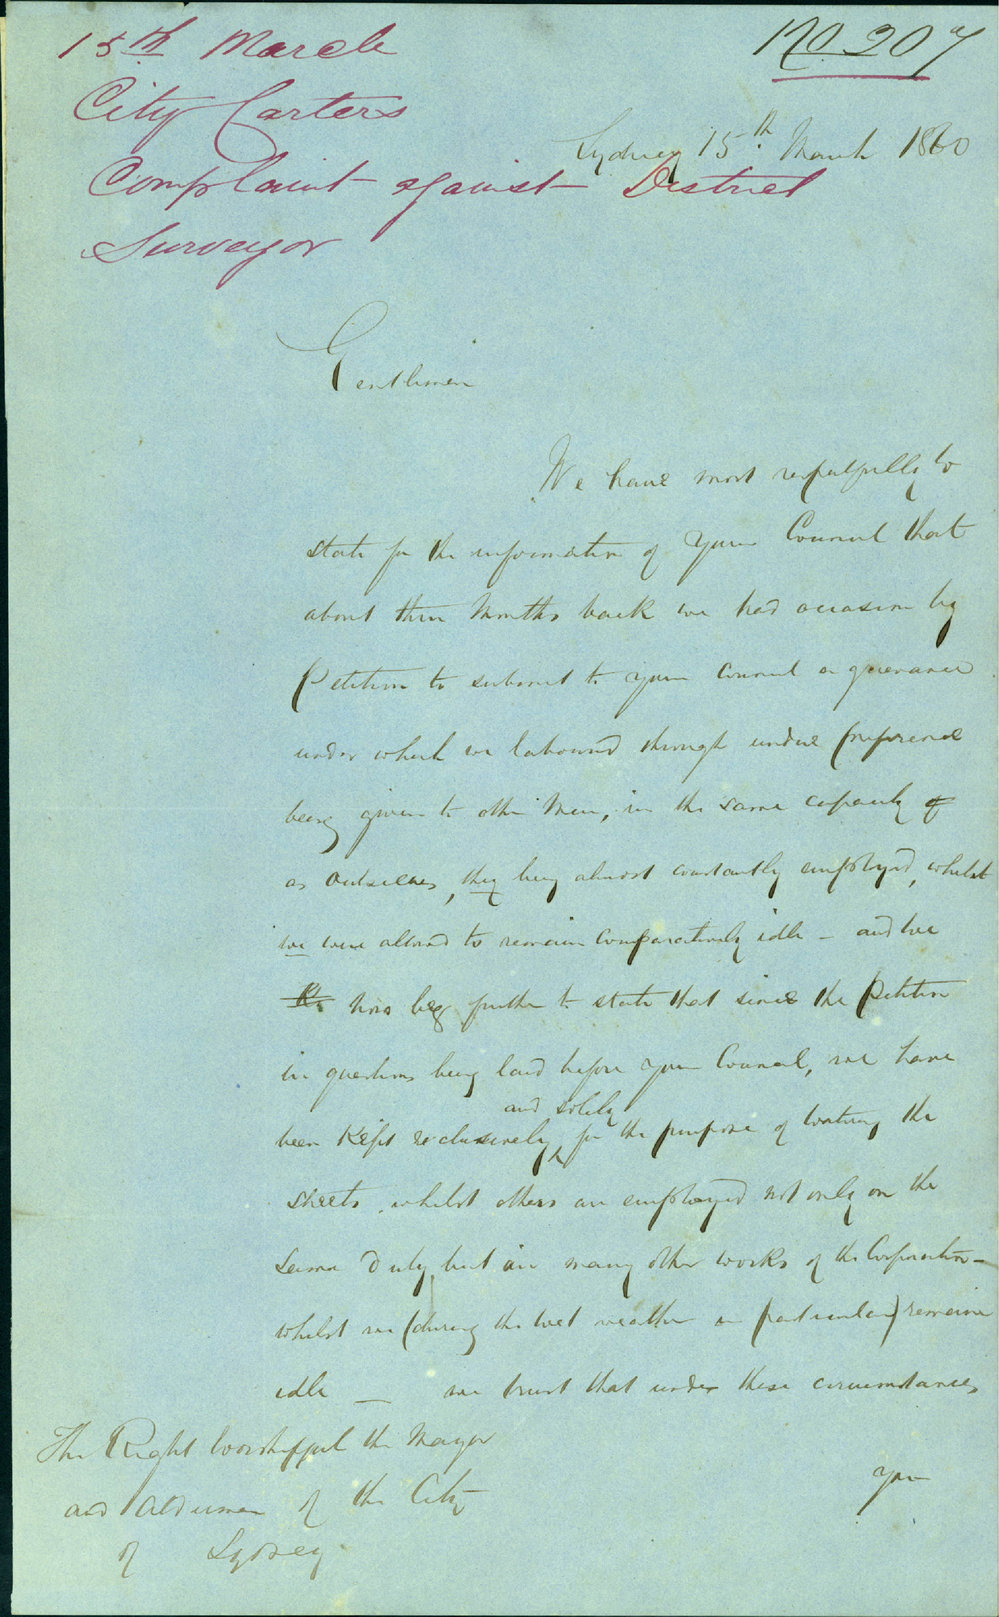 15th March
City Carters
Complaint against District
Surveyor
No 207
Sydney 15th March 1860
Gentlemen
We have most respectfully to
state for the information of your Council that
about three Months back we had occasion by
Petition to submit to your Council a grievance
under which we laboured through undue preference
being given to other Men, in the same capacity of
as ourselves, they being almost constantly employed, whilst
we were allowed to remain comparatively idle - and we
now beg further to state that since the Petition
in question being laid before your Council, we have
been Kept exclusively and solely for the purpose of watering the
Streets, whilst others are employed not only on the
same duty but in many other works of the Corporation -
whilst we (during the wet weather in particular) remain
idle — we trust that under these circumstances
your
The Right Worshipful the Mayor
and Aldermen of the City
of Sydney